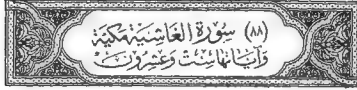 (٨٨) سُورَةُ الغَاشِيَةِ مَكِيَّة
وَآيَاتُهَا سِتٌّ وَعِشْرُونَ